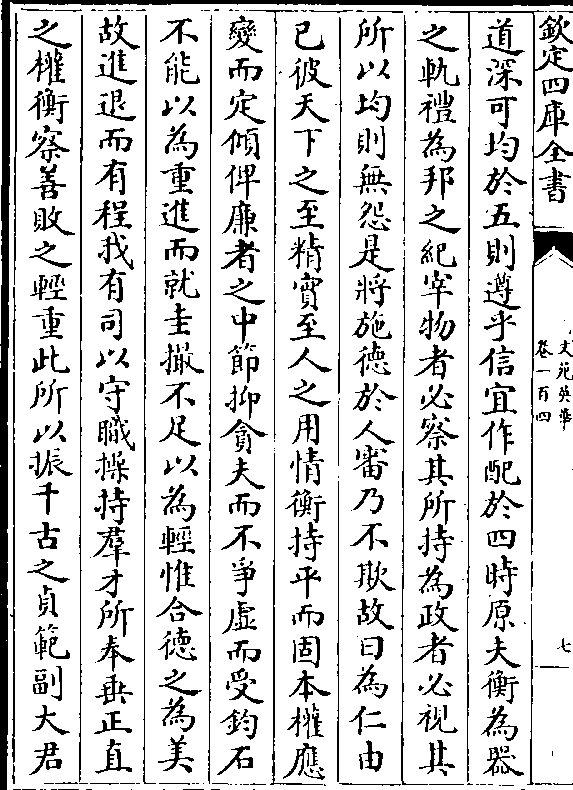 欽定四庫全書
文苑英華
卷一百四
七
道深可均於五則遵乎信宜作配於四時原夫衡為器
之軌禮為邦之紀宰物者必察其所持為政者必視其
所以均則無怨是將施德於人審乃不欺故曰為仁由
已彼天下之至精實至人之用情衡持平而固本權應
變而定傾俾廉者之中節抑貪夫而不爭虛而受鈞石
不能以為重進而就圭撮不足以為輕惟合德之為美
故進退而有程我有司以守職操持羣才所奉垂正直
之權衡察善敗之輕重此所以振千古之貞範副大君